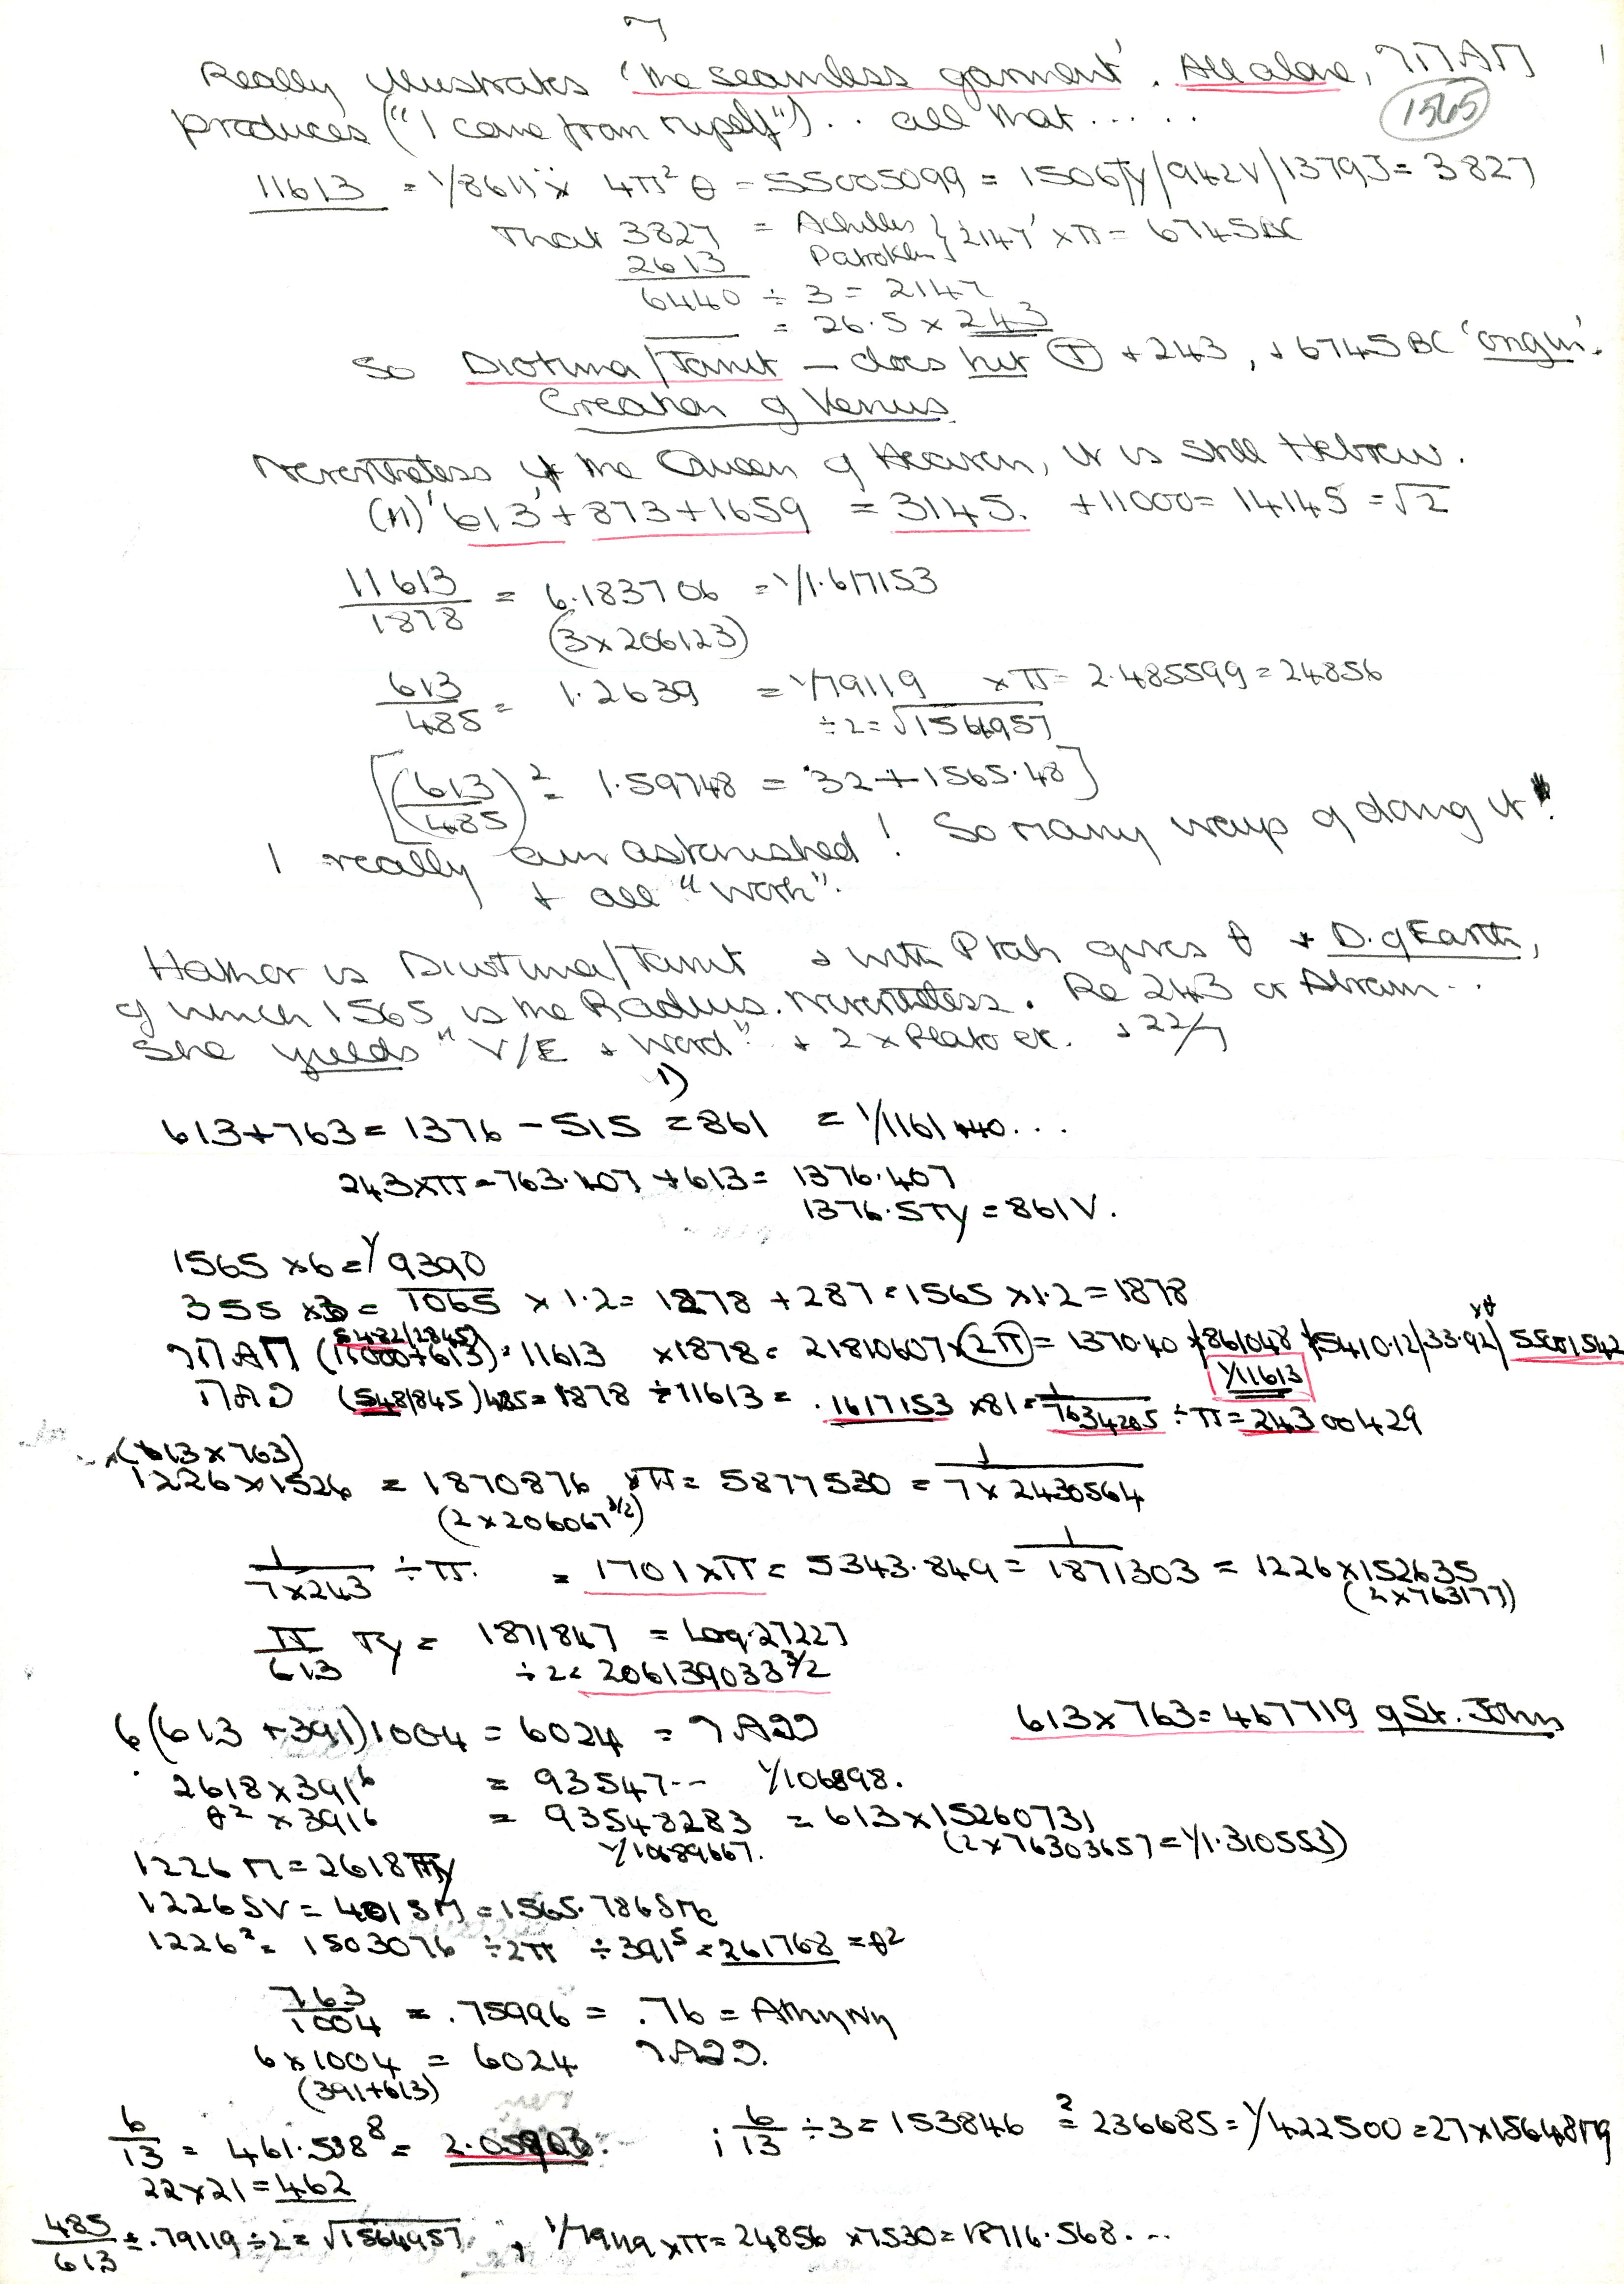 7
Really illustrates 'the seamless garment'. All alone,
1565
produces ("I came from myself") .. all that .....
11613 = 1/8611 x 4π²θ = 55005099 = 1506Ty/942V/1379J = 3827
That 3827 = Achilles } 2147' xπ = 6745BC
2613 Patroklus
6440 ÷ 3 = 2147
= 26.5 x 243
So Diotima/Tanit - does hit T + 243, + 6745BC 'origin'.
Creation of Venus
Nevertheless if the Queen of Heaven, it is still Hebrew.
(11)'613'+873+1659 = 3145. +11000= 14145 = √2
11613/1878 = 6.183706 = 1/1.617153
(3x206123)
613/485 = 1.2639 = 1/79119 xπ= 2.485599=24856
÷2=√1564957
[(613/485)² = 1.59748 = .32+1565.48]
I really am astonished! So many ways of doing it!
+ all "work".
Hathor is Diotima/Tanit & with Ptah gives θ + D. of Earth,
of which 1565 is the Radius. Nevertheless. Re 243 or Abram..
She yields "V/E + Word" + 2 x Plato etc. + 22/7
1)
613+763=1376-515=861 = 1/116140...
243xπ=763.407 +613= 1376.407
1376.5Ty=861V.
1565 x6=9390
355 x3= 1065 x1.2= 1278 +287=1565 x1.2=1878
5482/2845
(11000+613)=11613 x1878= 21810607x(2π)= 1370.40 x861048 5410.12/33.92 xθ 5501542
1/11613
(548/845)485=1878 ÷11613= .1617153 x81= 1/7634205 ÷π=24300429
(613x763)
1226x1526 = 1870876 xπ= 5877530 = 1/7x2430564
(2x206067 3/2)
1/7x243 ÷π. = 1701xπ= 5343.849= 1/1871303 = 1226x152635
(2x763177)
π/613 Ty = 1871847 = Log.27227
÷2= 206139033 3/2
6(613+391)1004 = 6024 =
613x763=467719 of St. John
2618x391⁶ = 93547-- 1/106898.
θ² x391⁶ = 93548283 = 613x15260731
1/10689667. (2x76303657=1/1.310553)
1226M=2618Ty
1226SV=401SM=1565.786SMc
1226²= 1503076 ÷2π ÷391⁵=261768=θ²
763/1004 = .75996 = .76 =
6x1004 = 6024
(391+613)
6/13 = 461.538⁸ =
; 6/13 ÷3=153846 ²= 236685=1/422500=27x1564879
22x21=462
485/613 = .79119÷2=√1564957, 1/79119xπ=24856 x7530=18716.568...